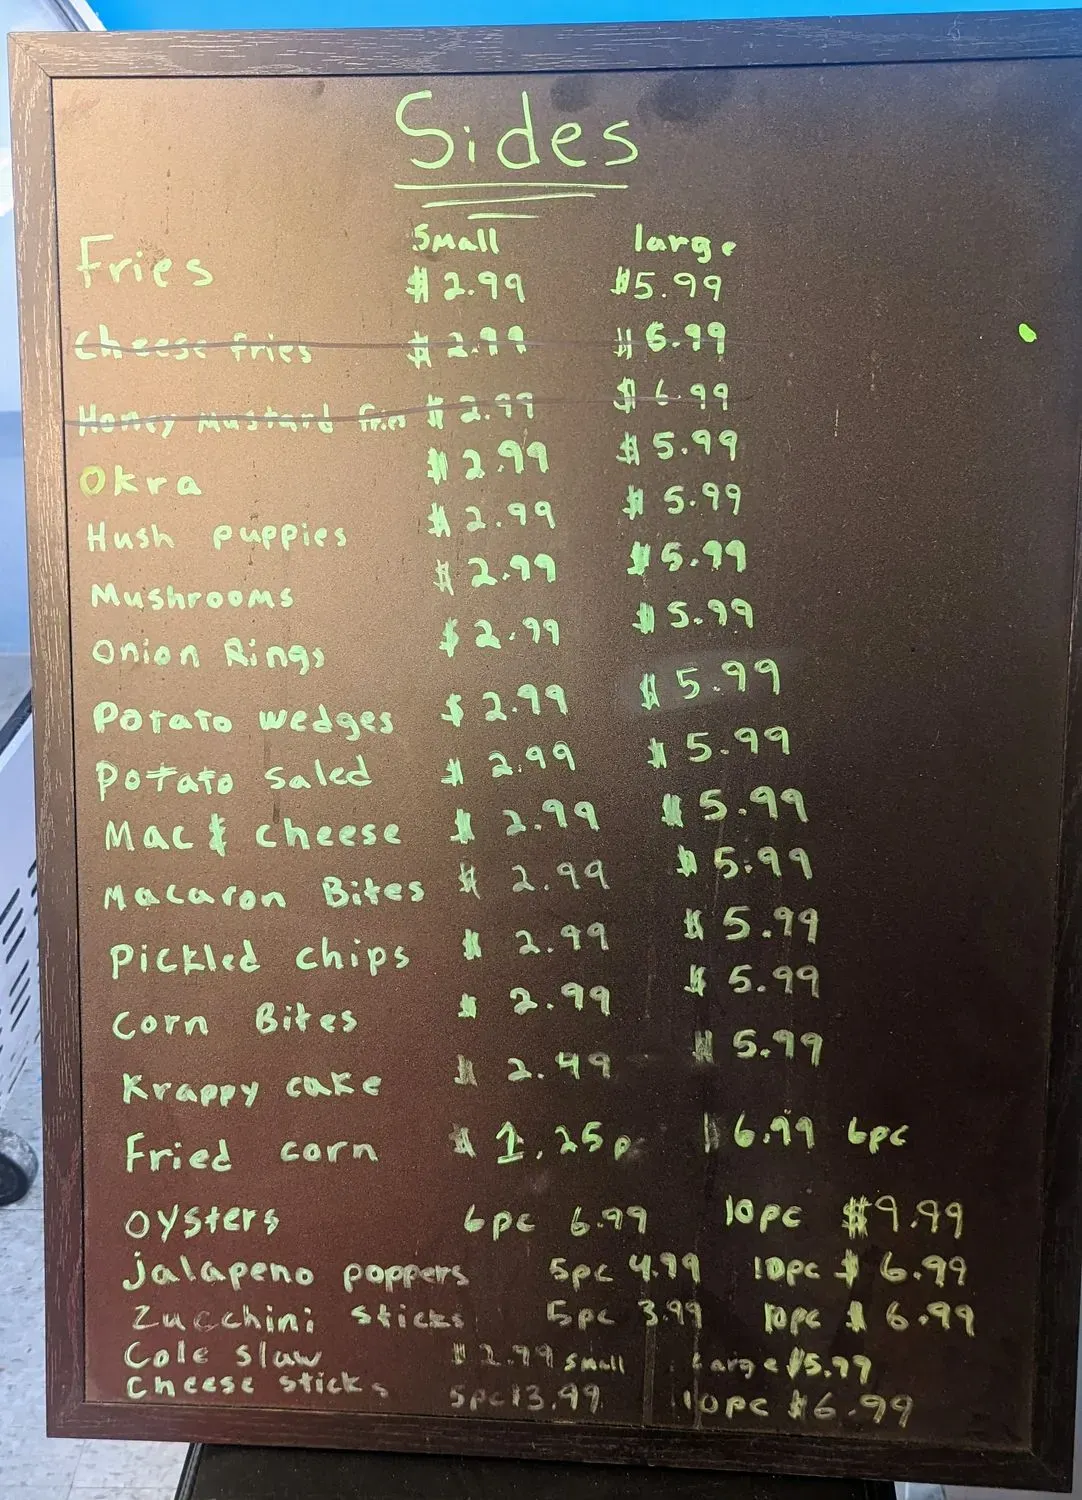 Sides
small large
Fries $2.99 $5.99
Cheese fries $2.99 $6.99
Honey Mustard fries $2.99 $6.99
Okra $2.99 $5.99
Hush puppies $2.99 $5.99
Mushrooms $2.99 $5.99
Onion Rings $2.99 $5.99
Potato wedges $2.99 $5.99
Potato saled $2.99 $5.99
Mac & cheese $2.99 $5.99
Macaron Bites $2.99 $5.99
Pickled chips $2.99 $5.99
Corn Bites $2.99 $5.99
Krappy cake $2.99 $5.99
Fried corn $1.25p $6.99 6pc
Oysters 6pc 6.99 10pc $9.99
jalapeno poppers 5pc 4.99 10pc $6.99
Zucchini sticks 5pc 3.99 10pc $6.99
Cole slaw $2.99 small large $5.99
Cheese sticks 5pc 3.99 10pc $6.99